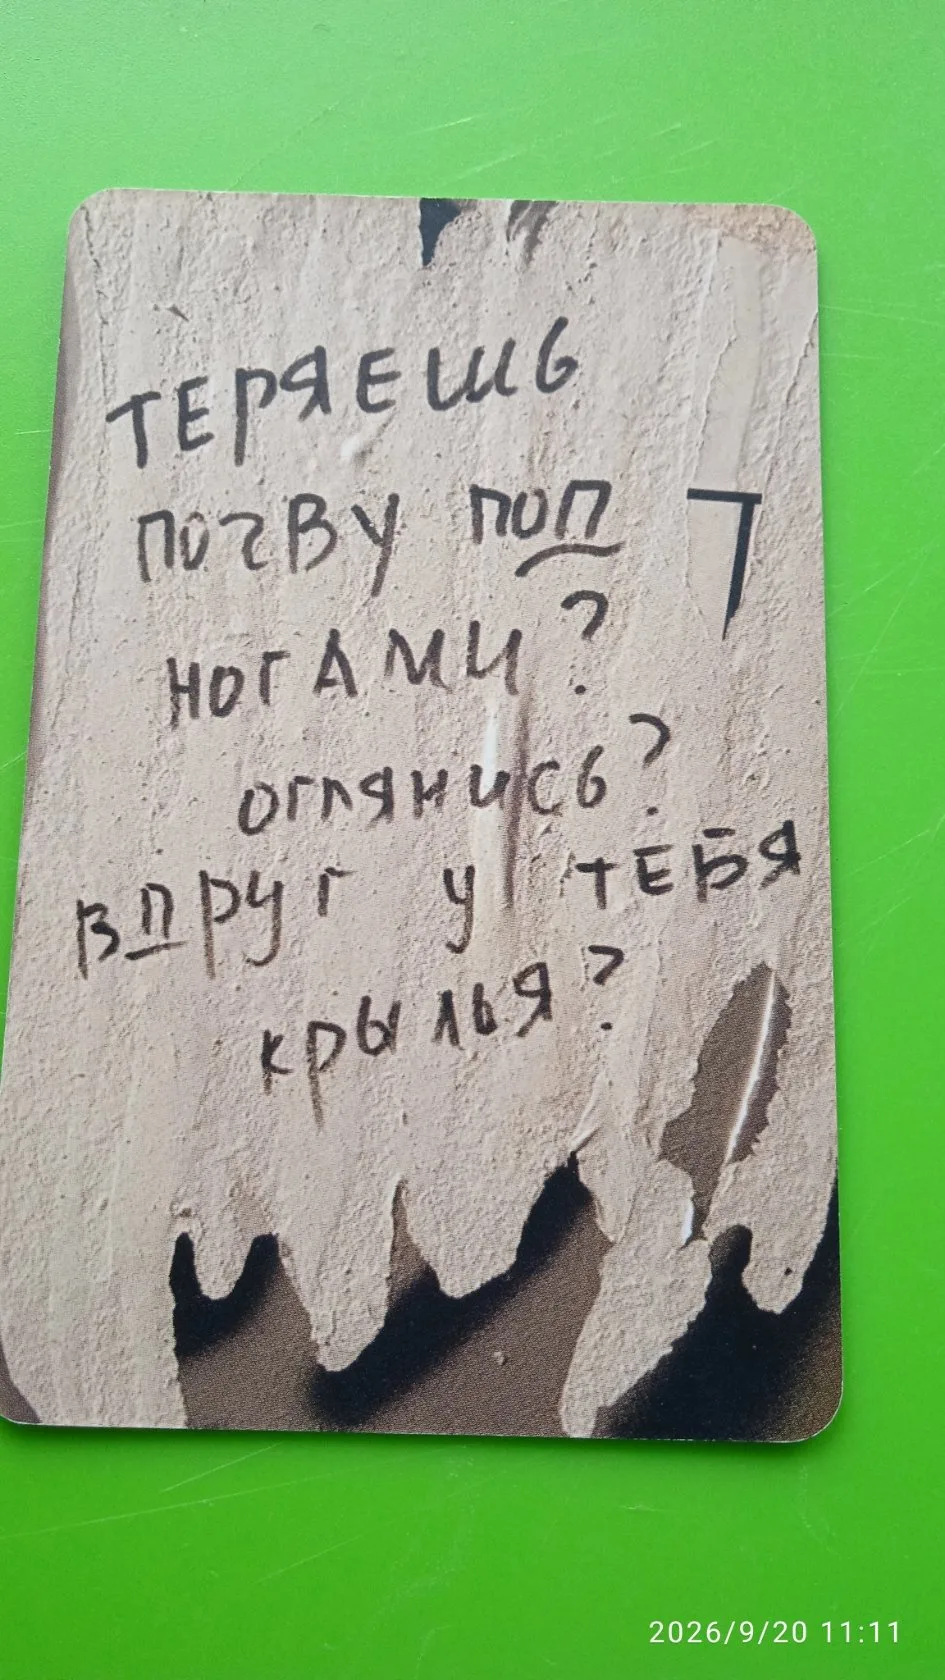 ТЕРЯЕШЬ
ПОЧВУ ПОП
НОГАМИ?
ОГЛЯНИСЬ?
ВПРУГ У ТЕБЯ
КРЫЛЬЯ?
2026/9/20 11:11